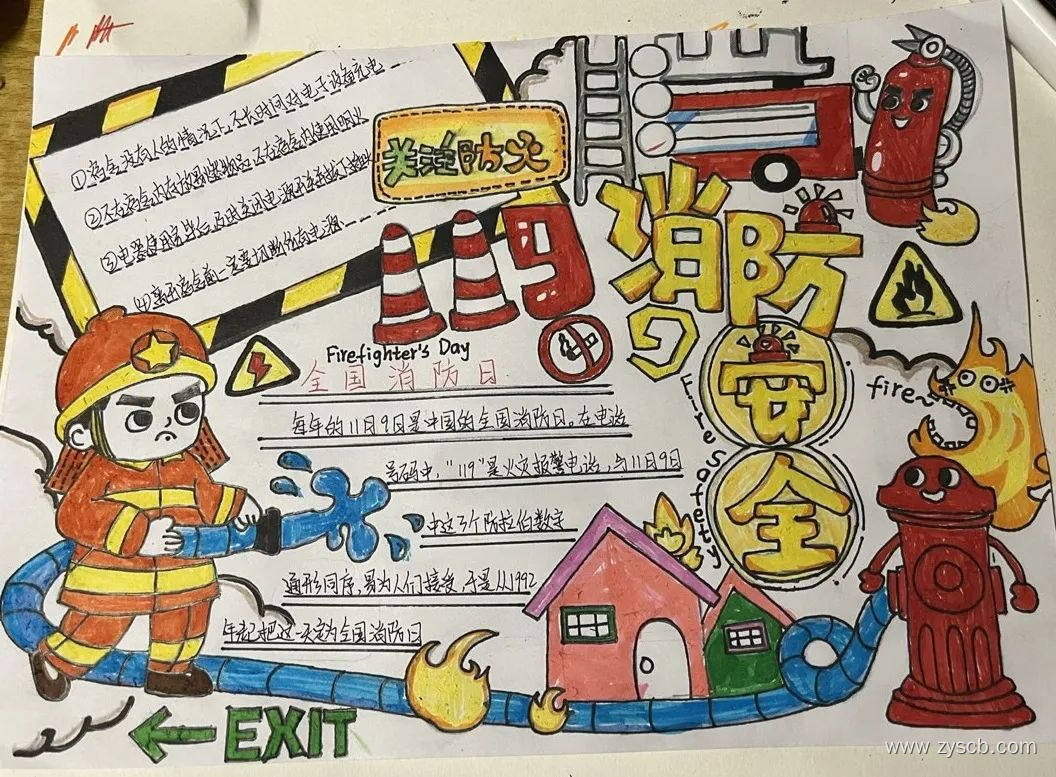 ①寝室没有人的情况下,不长时间对电子设备充电
②不在寝室内存放易燃物品,不在寝室内使用明火
③电器使用完毕后,及时关闭电源开关并拔下插
④离开寝室前一定要切断所有电源
关注防火
119
消防
安
全
Firefighter's Day
全国消防日
fire~
Fire Safety
每年的11月9日是中国的全国消防日。在电话
号码中,"119"是火灾报警电话,与11月9日
中这3个阿拉伯数字
道形同序,易为人们接受,于是从1992
年起把这一天定为全国消防日
EXIT
www.zyscb.com